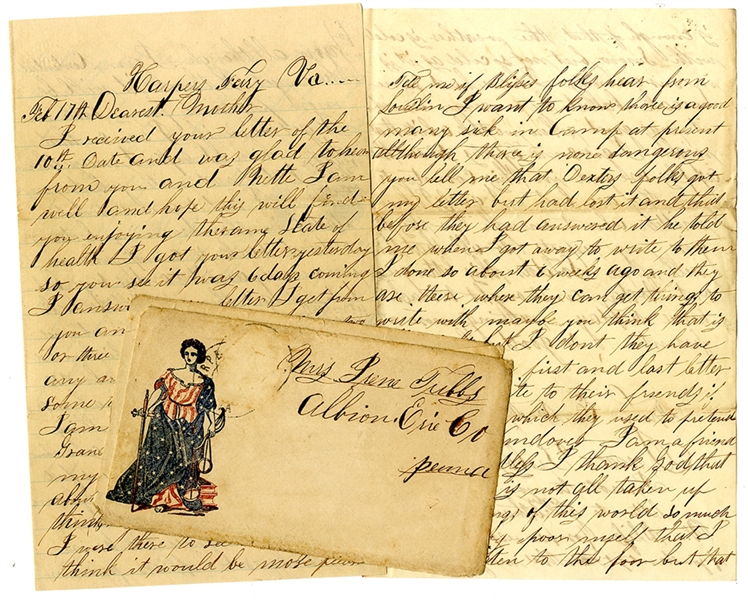 Harpers Fary Va
Feb 17th Dearest Mother
I received your letter of the
10th Date and was glad to hear
from you and Nette I am
well and hope this will find
you enjoying the same State of
health I got your letter yesterday
so you see it was 6 days coming
I answ letter I get from
you an two
or three
any a
some
I am
Gran
my
abou
think
I were there to see
think it would be more pleas
Tell me if Blisses folks hear from
I want to know there is a good
many sick in Camp at present
although there is none dangerous
you tell me that Dexters folks got
my letter but had lost it and that
before they had answered it he told
me when I got away to write to them
I done so about 6 weeks ago and they
are there where they can get things to
write with maybe you think that is
but I dont they have
first and last letter
te to their friends if
which they used to pretend
I am a friend
less I thank God that
is not all taken up
of this world so much
poor myself that I
ten to the poor but that
Mrs Irene Tubbs
Albion Erie Co
penna